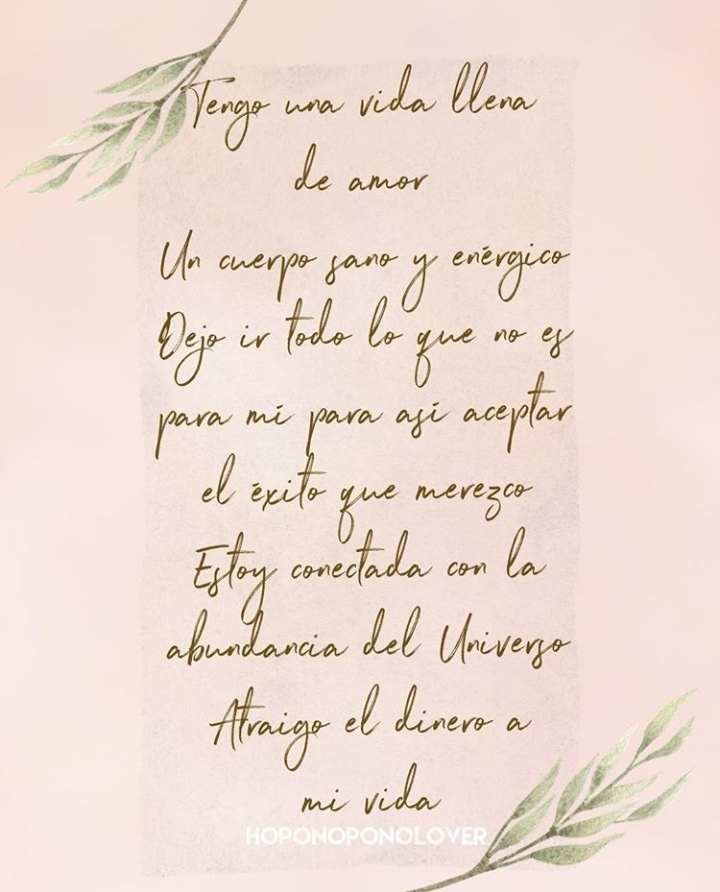 Tengo una vida llena
de amor
Un cuerpo sano y enérgico
Dejo ir todo lo que no es
para mí para así aceptar
el éxito que merezco
Estoy conectada con la
abundancia del Universo
Atraigo el dinero a
mi vida
HOPONOPONOLOVER